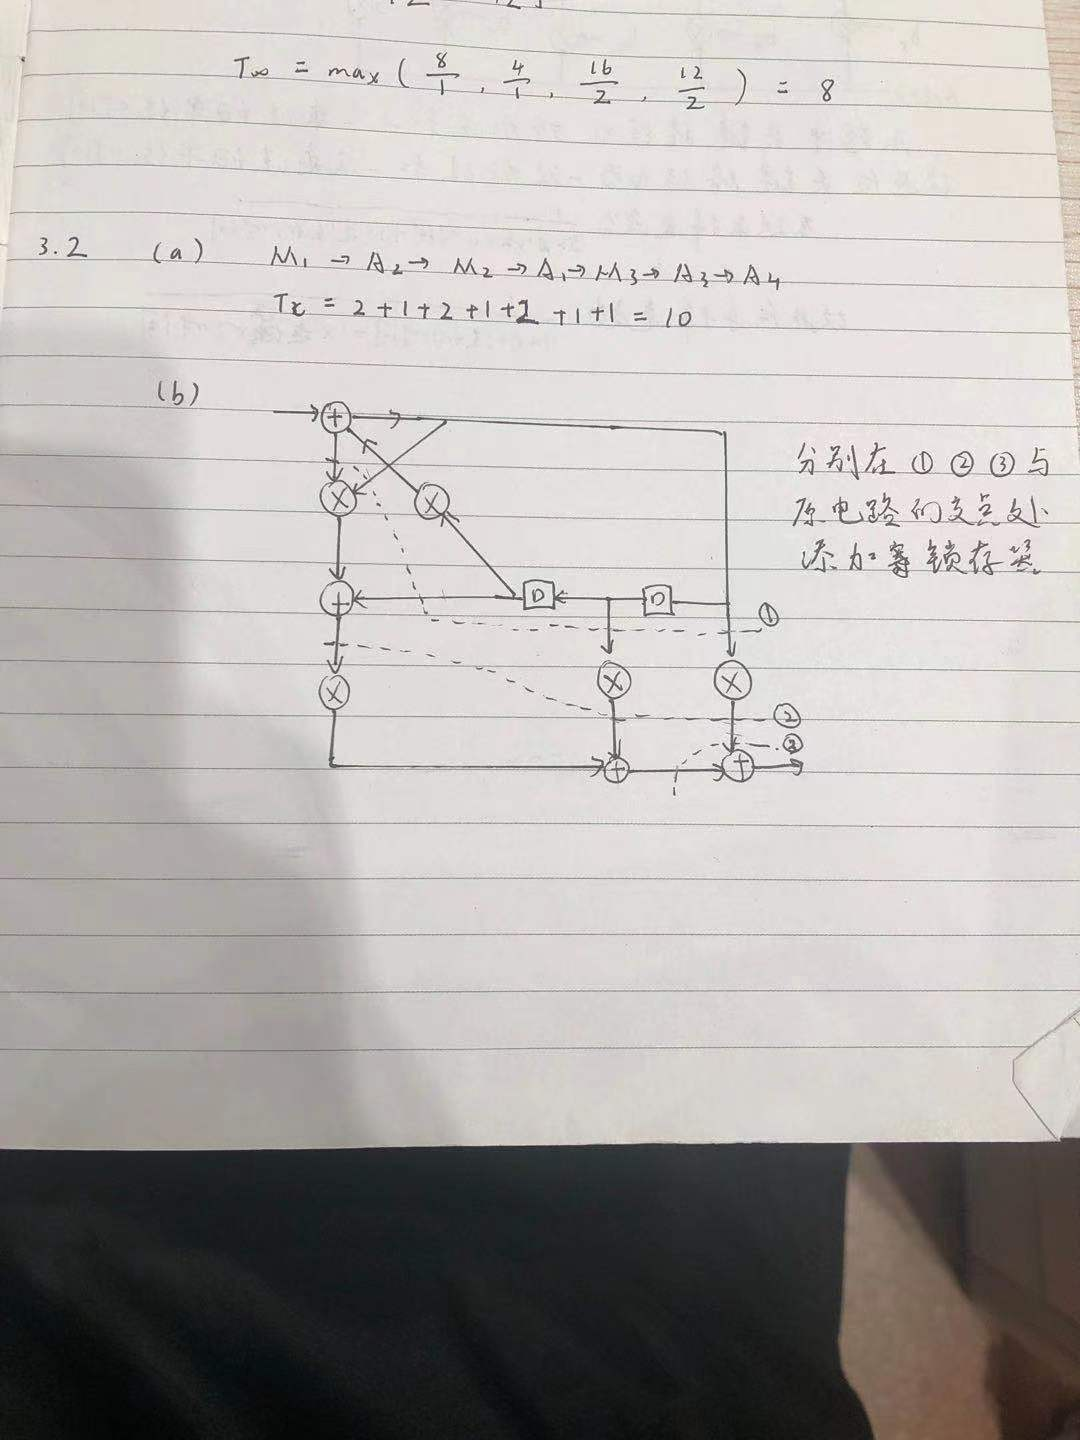 T∞ = max ( 8/1 , 4/1 , 16/2 , 12/2 ) = 8
3.2 (a) M₁ → A₂ → M₂ → A₁ → M₃ → A₃ → A₄
= 2 + 1 + 2 + 1 + 2 + 1 + 1 = 10
(b)
+
分别在 ① ② ③ 与
× ×
原电路的交点处
添加 锁存器
+ D D
①
× × ×
②
③
+ +